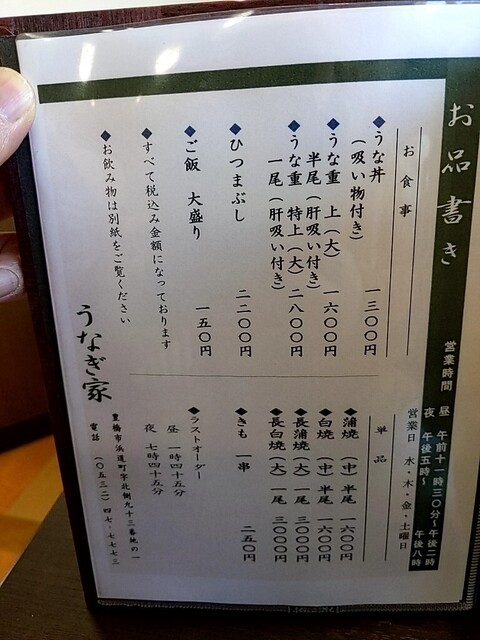 お品書き
営業時間 昼 午前十一時三〇分～午後二時
夜 午後五時～午後八時
営業日 水・木・金・土曜日
お食事
◆うな丼 一三〇〇円
（吸い物付き）
◆うな重 上（大） 一六〇〇円
半尾（肝吸い付き）
◆うな重 特上（大） 二八〇〇円
一尾（肝吸い付き）
◆ひつまぶし 二二〇〇円
◆ご飯 大盛り 一五〇円
◆すべて税込み金額になっております
◆お飲み物は別紙をご覧ください
単品
◆蒲焼（中）半尾 一六〇〇円
◆白焼（中）半尾 一六〇〇円
◆長蒲焼（大）一尾 三〇〇〇円
◆長白焼（大）一尾 三〇〇〇円
◆きも 一串 二五〇円
◆ラストオーダー
昼 一時四十五分
夜 七時四十五分
うなぎ家
豊橋市浜道町字北側九十三番地の一
電話（〇五三二）四七-七七七三